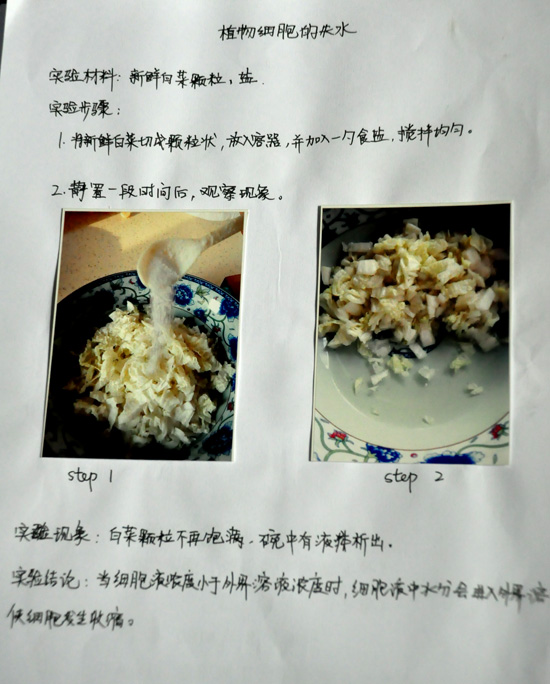 植物细胞的失水
实验材料：新鲜白菜颗粒、盐.
实验步骤：
1. 将新鲜白菜切成颗粒状，放入容器，并加入一勺食盐.搅拌均匀。
2. 静置一段时间后，观察现象。
step 1
step 2
实验现象：白菜颗粒不再饱满.碗中有液体析出.
实验结论：当细胞液浓度小于外界溶液浓度时，细胞液中水分会进入外界溶
使细胞发生收缩。